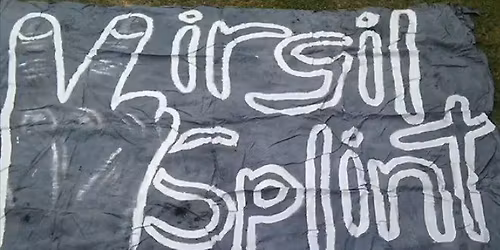 Virgil
Splint